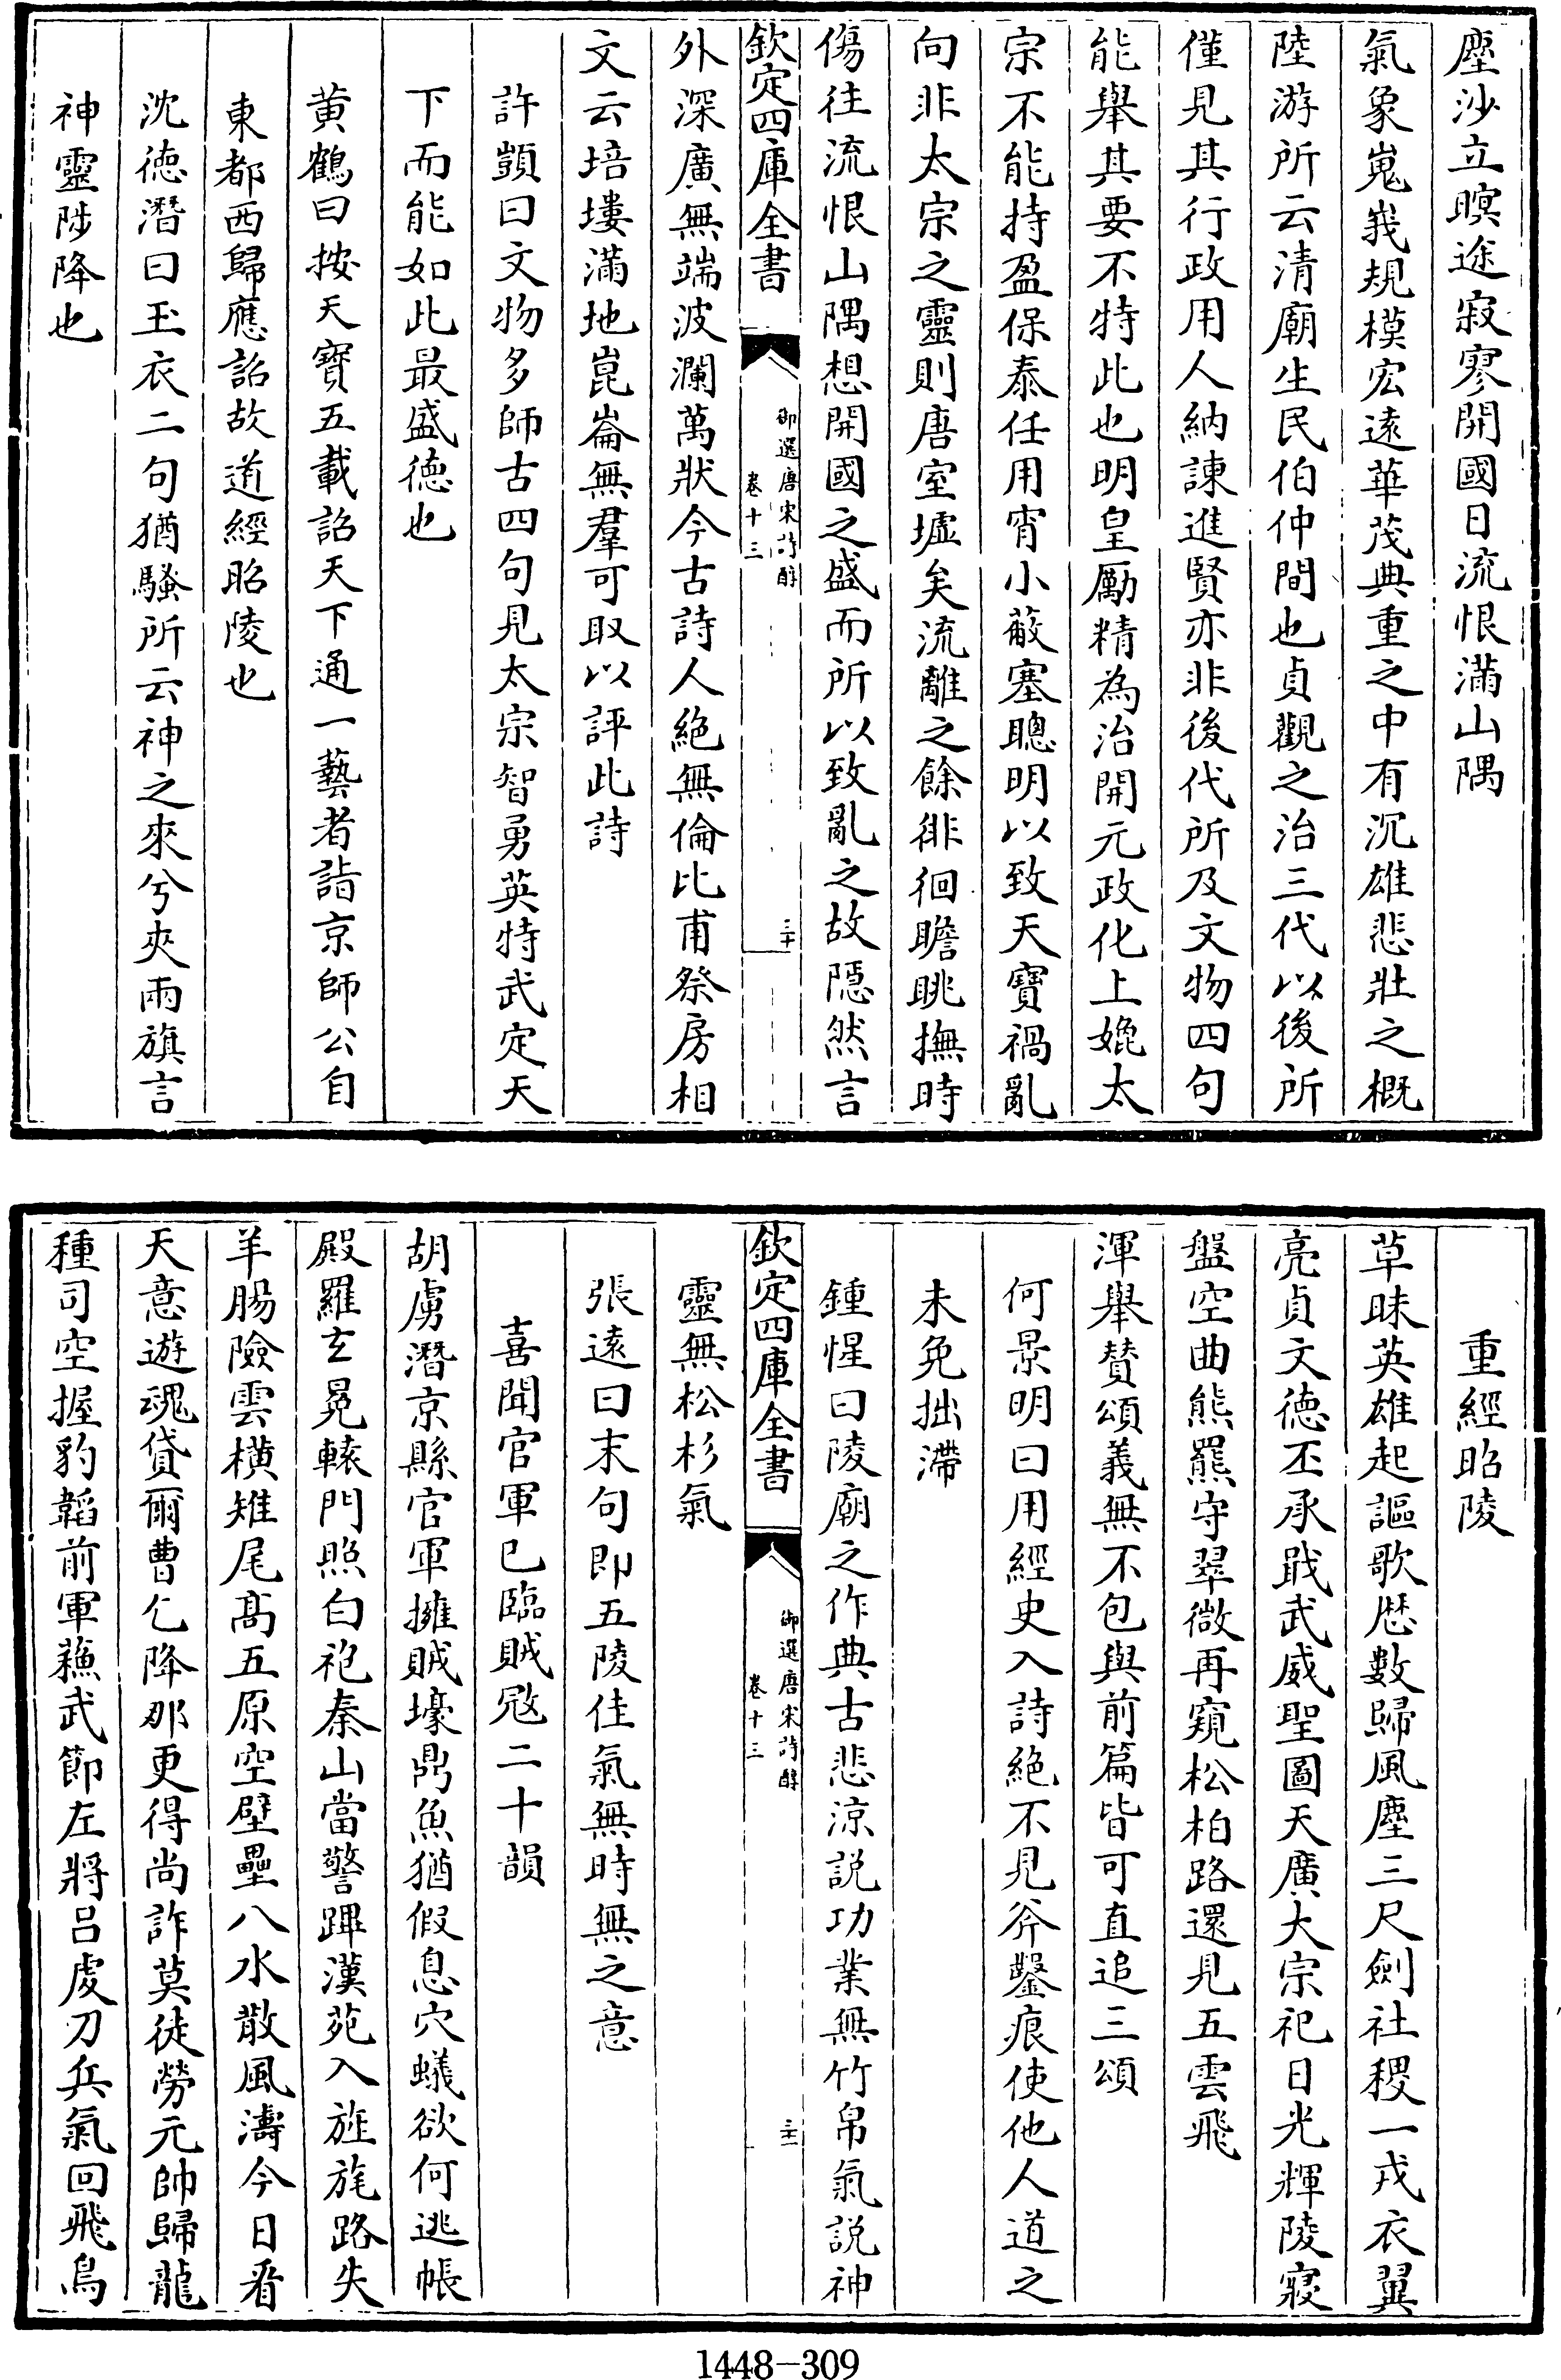 塵沙立暝途寂寥開國日流恨滿山隅
氣象嵬峩規模宏遠華茂典重之中有沉雄悲壯之概
陸游所云清廟生民伯仲間也貞觀之治三代以後所
僅見其行政用人納諫進賢亦非後代所及文物四句
能舉其要不特此也明皇厲精為治開元政化上媲太
宗不能持盈保泰任用宵小蔽塞聰明以致天寶禍亂
向非太宗之靈則唐室墟矣流離之餘徘徊瞻眺撫時
傷往流恨山隅想開國之盛而所以致亂之故隱然言
欽定四庫全書
御選唐宋詩醇
卷十三
三十
外深廣無端波瀾萬狀今古詩人絶無倫比甫祭房相
文云培塿滿地崑崙無羣可取以評此詩
許顗曰文物多師古四句見太宗智勇英特武定天
下而能如此最盛德也
黃鶴曰按天寶五載詔天下通一藝者詣京師公自
東都西歸應詔故道經昭陵也
沈德潛曰玉衣二句猶騷所云神之來兮夾兩旗言
神靈陟降也
重經昭陵
草昧英雄起謳歌厯數歸風塵三尺劍社稷一戎衣翼
亮貞文德丕承戢武威聖圖天廣大宗祀日光輝陵寢
盤空曲熊羆守翠微再窺松柏路還見五雲飛
渾舉贊頌義無不包與前篇皆可直追三頌
何景明曰用經史入詩絶不見斧鑿痕使他人道之
未免拙滯
鍾惺曰陵廟之作典古悲涼説功業無竹帛氣説神
欽定四庫全書
御選唐宋詩醇
卷十三
三十一
靈無松杉氣
張遠曰末句即五陵佳氣無時無之意
喜聞官軍已臨賊宼二十韻
胡虜潛京縣官軍擁賊壕鼎魚猶假息穴蟻欲何逃帳
殿羅玄冕轅門照白袍秦山當警蹕漢苑入旌旄路失
羊腸險雲橫雉尾髙五原空壁壘八水散風濤今日看
天意遊魂貸爾曹乞降那更得尚詐莫徒勞元帥歸龍
種司空握豹韜前軍蘓武節左將吕虔刀兵氣回飛鳥
1448-309